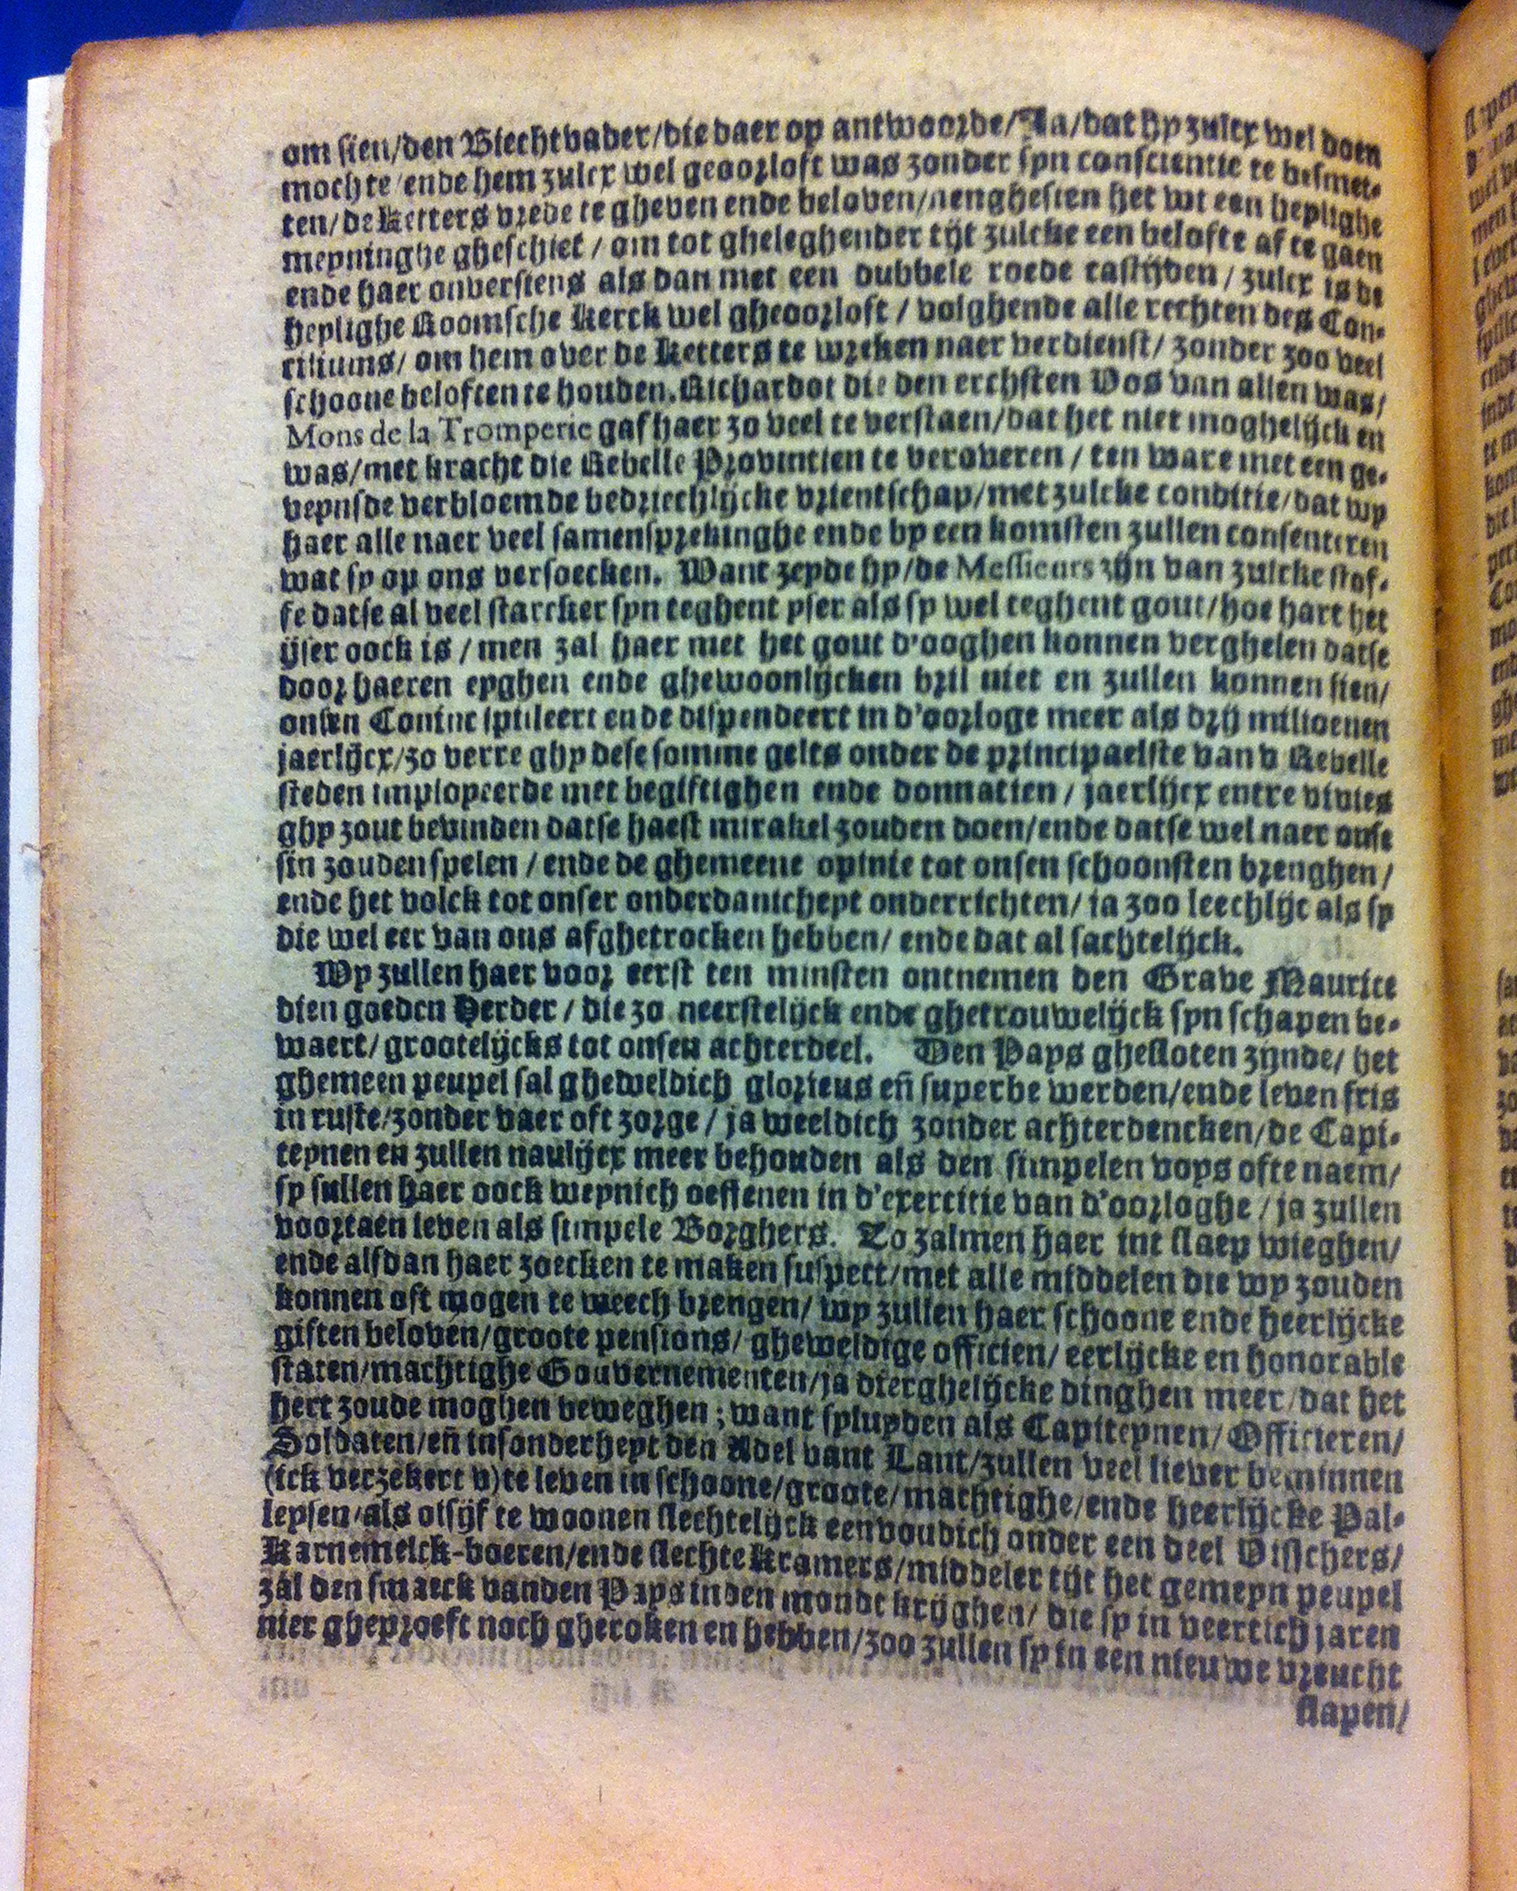 om sien/den Biechtvader/die daer op antwoorde/Ja/dat hy zulcx wel doen
mochte/ende hem zulcx wel geoorloft was zonder syn conscientie te besmet-
ten/de Ketters vrede te gheven ende beloven/aenghesien het wt een heylighe
meyninghe gheschiet/om tot gheleghender tijt zulcke een belofte af te gaen
ende haer onversiens als dan met een dubbele roede castijden/zulcx is de
heylighe Roomsche Kerck wel gheoorloft/volghende alle rechten des Con-
ciliums/om hem over de Ketters te wreken naer verdienst/zonder zoo veel
schoone beloften te houden. Richardot die den erchsten Vos van allen was/
Mons de la Tromperie gaf haer zo veel te verstaen/dat het niet moghelijck en
was/met kracht die Rebelle Provintien te veroveren/ten ware met een ge-
veynsde verbloemde bedriechlijcke vrientschap/met zulcke conditie/dat wy
haer alle naer veel samensprekinghe ende by een komsten zullen consenteren
wat sy op ons versoecken. Want zeyde hy/de Messieurs zijn van zulcke stof-
fe datse al veel starcker syn teghent yser als sy wel teghent gout/hoe hart het
ijser oock is/men zal haer met het gout d'ooghen konnen verghelen datse
door haeren eyghen ende ghewoonlijcken bril niet en zullen konnen sien/
onsen Coninc spilleert ende dispendeert in d'oorloge meer als drij milioenen
jaerlijcx/zo verre ghy dese somme gelts onder de principaelste van v Rebelle
steden imployeerde met begiftighen ende donnatien/jaerlijcx entre vivies
ghy zout bevinden datse haest mirakel zouden doen/ende datse wel naer onse
sin zouden spelen/ende de ghemeene opinie tot onsen schoonsten brenghen/
ende het volck tot onser onderdanicheyt onderrichten/ja zoo leechlijc als sy
die wel eer van ons afghetrocken hebben/ende dat al sachtelijck.
Wy zullen haer voor eerst ten minsten ontnemen den Grave Maurice
dien goeden Herder/die zo neerstelijck ende ghetrouwelijck syn schapen be-
waert/grootelijcks tot onsen achterdeel. Den Pays ghesloten zijnde/het
ghemeen peupel sal gheweldich glorieus eñ superbe werden/ende leven fris
in ruste/zonder vaer oft zorge/ja weeldich zonder achterdencken/de Capi-
teynen en zullen naulijcx meer behouden als den simpelen voys ofte naem/
sy sullen haer oock weynich oeffenen in d'exercitie van d'oorloghe/ja zullen
voortaen leven als simpele Borghers. Zo zalmen haer int slaep wieghen/
ende alsdan haer zoecken te maken suspect/met alle middelen die wy zouden
konnen oft mogen te weech brengen/wy zullen haer schoone ende heerlijcke
giften beloven/groote pensions/gheweldige officien/eerlijcke en honorable
staten/machtighe Gouvernementen/ja dierghelijcke dinghen meer/dat het
hert zoude moghen beweghen; want sylupden als Capiteynen/Officieren/
Soldaten/eñ insonderheyt den Adel vant Lant/zullen veel liever beminnen
(ick verzekert v) te leven in schoone/groote/machtighe/ende heerlijcke Pal-
leysen/als olsijf te woonen slechtelijck eenvoudich onder een deel Visschers/
Karnemelck-boeren/ende slechte Kramers/middeler tijt het gemeyn peupel
zal den smaeck vanden Pays inden mondt krijghen/die sy in veertich jaren
niet gheproeft noch gheroken en hebben/zoo zullen sy in een nieuwe vreucht
slapen/